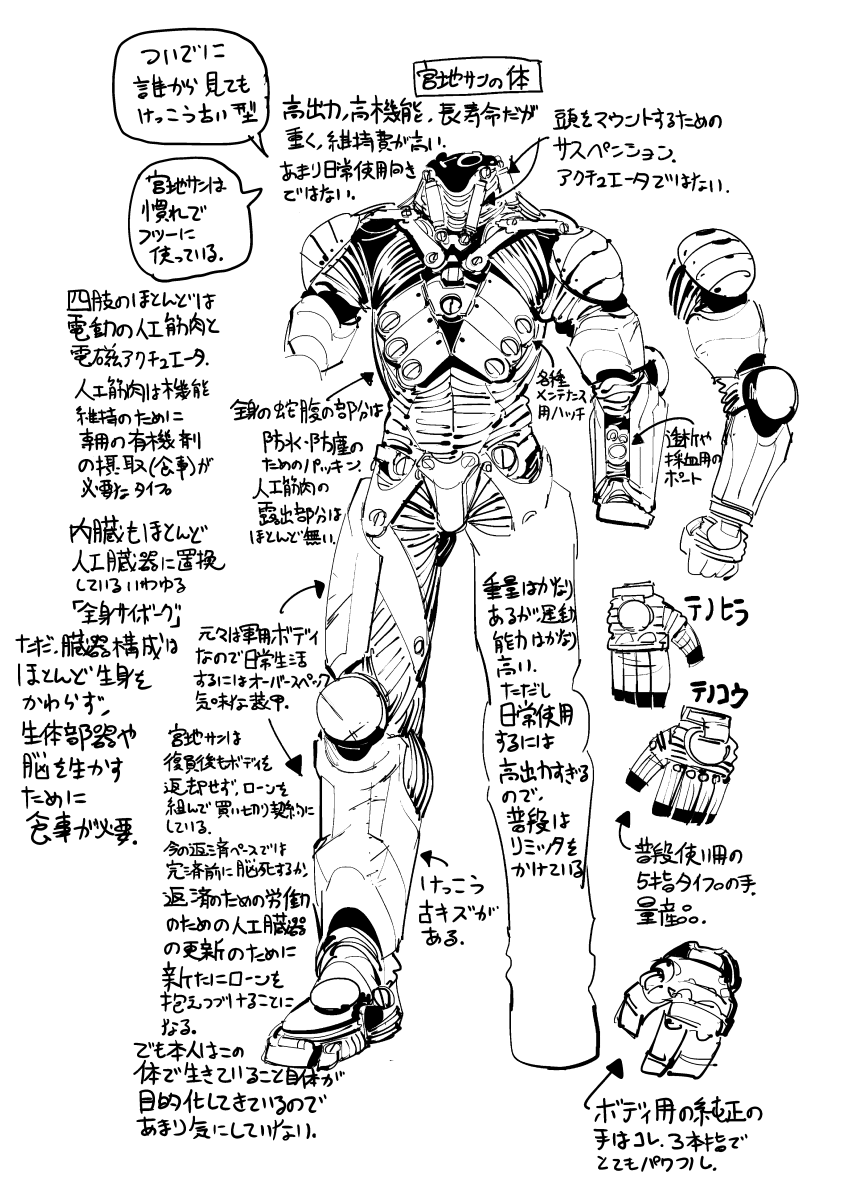 宮地サンの体
ついでに
誰から見ても
けっこう古い型
宮地サンは
慣れて
フツーに
使っている.
高出力,高機能,長寿命だが
重く,維持費が高い.
あまり日常使用向き
ではない.
頭をマウントするための
サスペンション.
アクチュエータではない.
四肢のほとんどは
電動の人工筋肉と
電磁アクチュエータ.
人工筋肉は機能
維持のために
専用の有機剤
の摂取(食事)が
必要なタイプ
内臓もほとんど
人工臓器に置換
しているいわゆる
「全身サイボーグ」
ただ,臓器構成は
ほとんど生身と
かわらず,
生体部器や
脳を生かす
ために
食事が必要.
全身の蛇腹の部分は
防水・防塵の
ためのパッキン.
人工筋肉の
露出部分は
ほとんど無い.
各種
メンテナンス
用ハッチ
透析や
採血用の
ポート
元々は軍用ボディ
なので日常生活
するにはオーバースペック
気味な装甲.
宮地サンは
復員後もボディを
返却せず,ローンを
組んで買い切り契約に
している.
今の返済ペースでは
完済前に脳死するが,
返済のための労働
のための人工臓器
の更新のために
新たにローンを
抱えつづけることに
なる.
でも本人はこの
体で生きていること自体が
目的化してきているので
あまり気にしていない.
けっこう
古キズが
ある.
重量はかなり
あるが,運動
能力はかなり
高い.
ただし
日常使用
するには
高出力すぎる
ので,
普段は
リミッタを
かけている
テノヒラ
テノコウ
普段使い用の
5指タイプの手.
量産品.
ボディ用の純正の
手はコレ.3本指で
とてもパワフル.